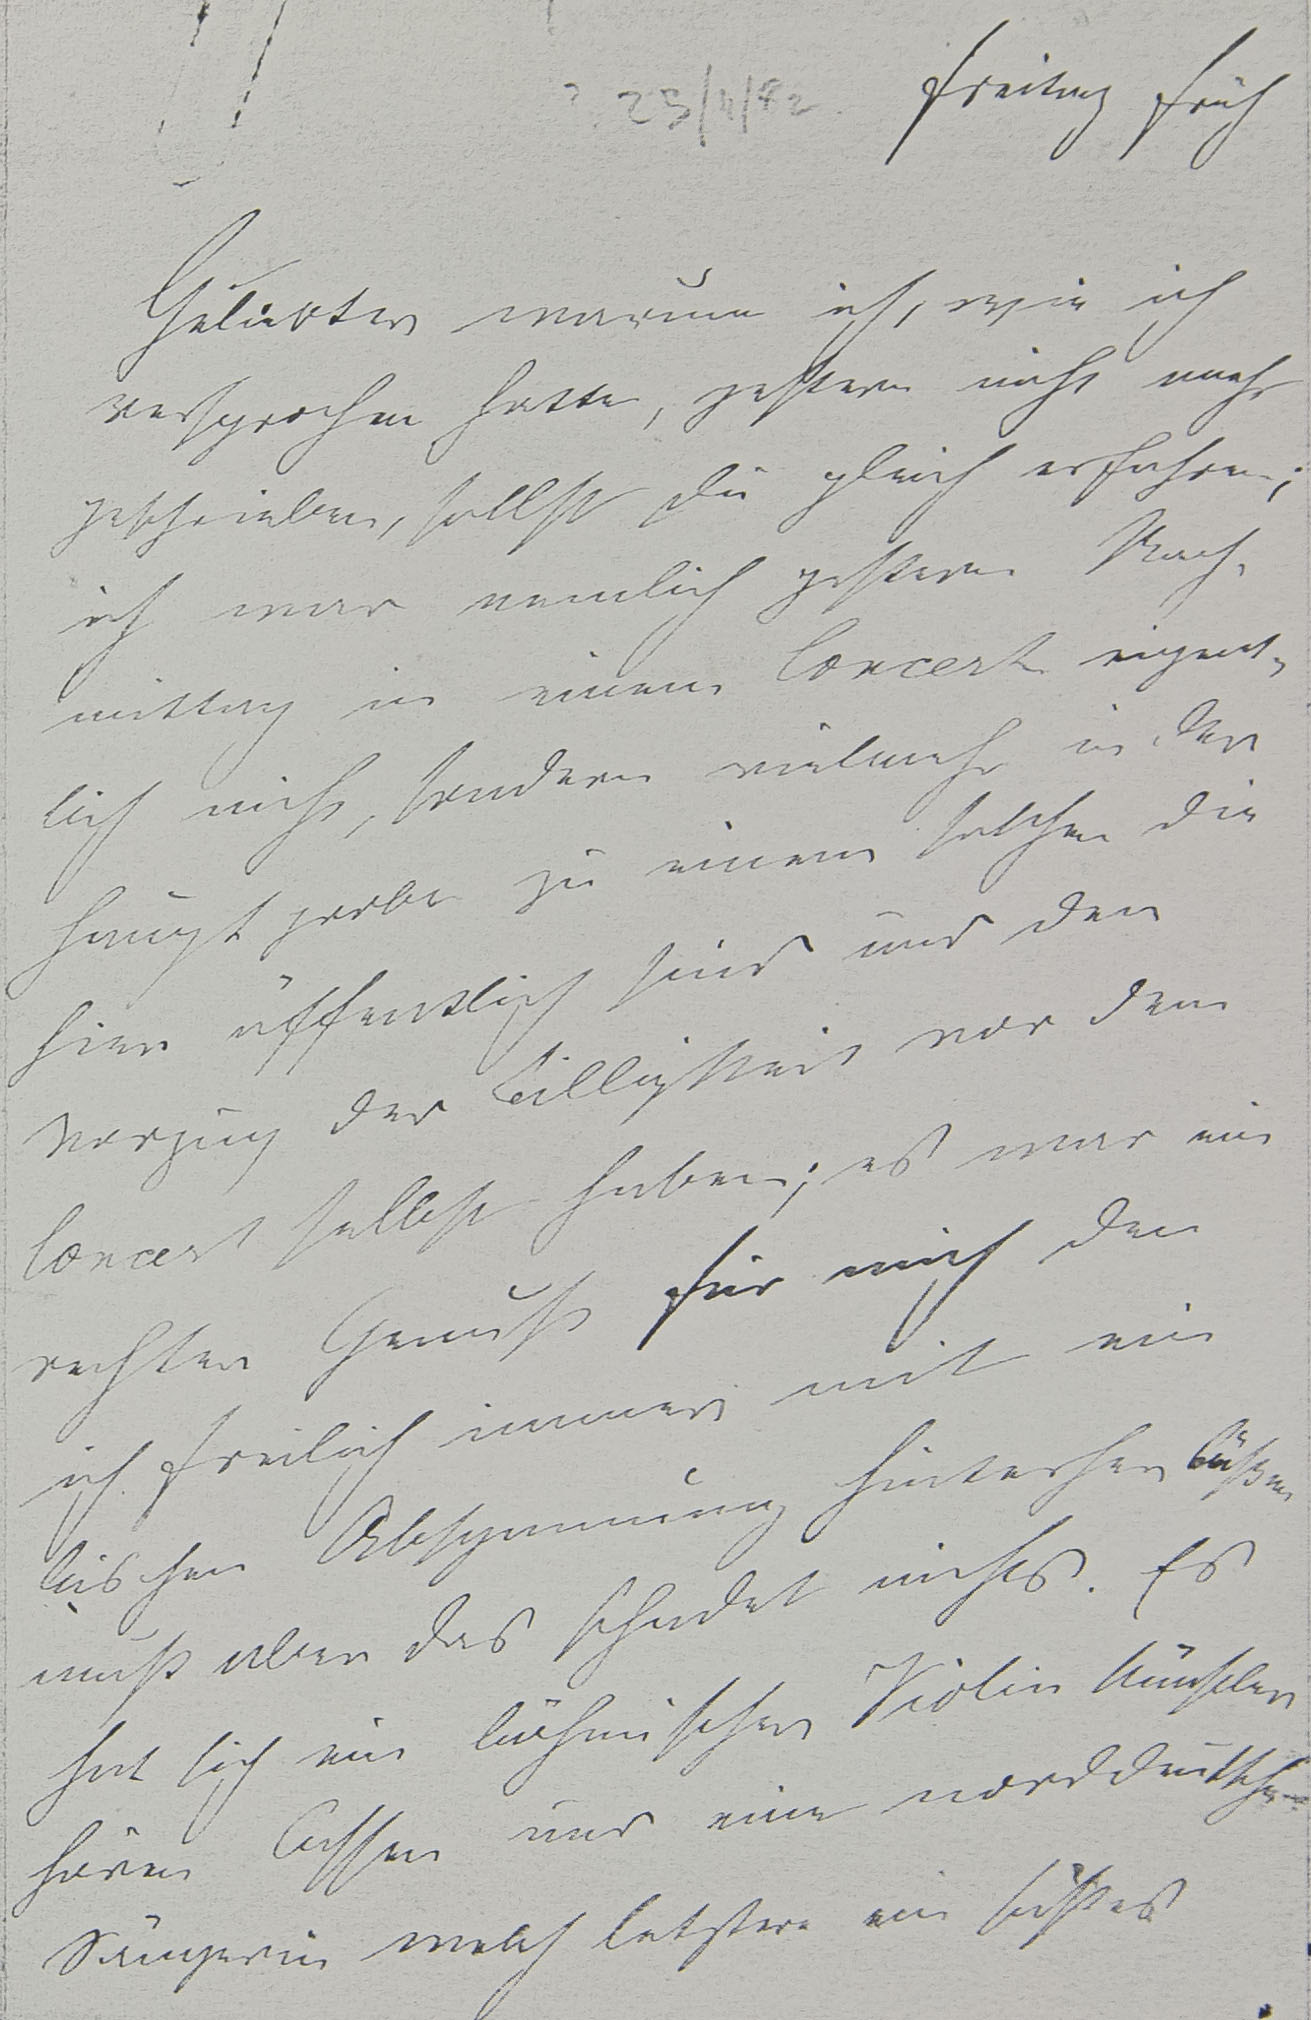 ? 25/11/82.
Freitag früh
Geliebter warum ich, wie ich
versprochen hatte, gestern nicht mehr
geschrieben, sollst Du gleich erfahren;
ich war nemlich gestern Nach-
mittag in einem Concert eigent-
lich nicht, sondern vielmehr in der
Hauptprobe zu einem solchen die
hier öffentlich sind und den
Vorzug der Billigkeit vor dem
Concert selbst haben; es war ein
rechter Genuß für mich den
ich freilich immer mit ein
bischen Abspannung hinterher büßen
muß aber das schadet nichts. Es
hat sich ein böhmischer Violin künstler
hören lassen und eine norddeutsche
Sängerin welch letztere ein süßes